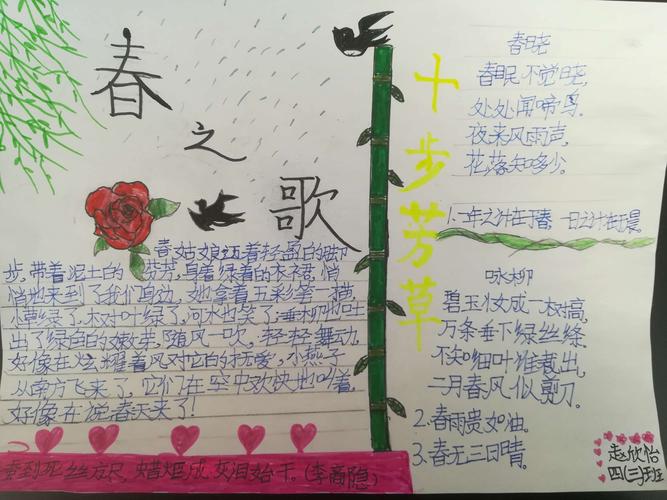 春之歌
春姑娘迈着轻盈的脚
步,带着泥土的芬芳,身着绿着的衣裙悄
悄地来到了我们身边,她拿着五彩笔一描,
小草绿了,树叶绿了,河水也笑了;垂柳也吐
出了绿色的嫩芽,随风一吹,轻轻舞动,
好像在炫耀着风对它的抚爱,小燕子
从南方飞来了,它们在空中欢快地叫着,
好像在说春天来了!
蚕到死丝方尽,蜡炬成灰泪始干。(李商隐)
十步芳草
春晓
春眠不觉晓,
处处闻啼鸟。
夜来风雨声,
花落知多少。
1.一年之计在于春,一日之计在于晨。
咏柳
碧玉妆成一树高,
万条垂下绿丝绦
不知细叶谁裁出,
二月春风似剪刀。
2.春雨贵如油。
3.春无三日晴。
赵欣怡
四(三)班